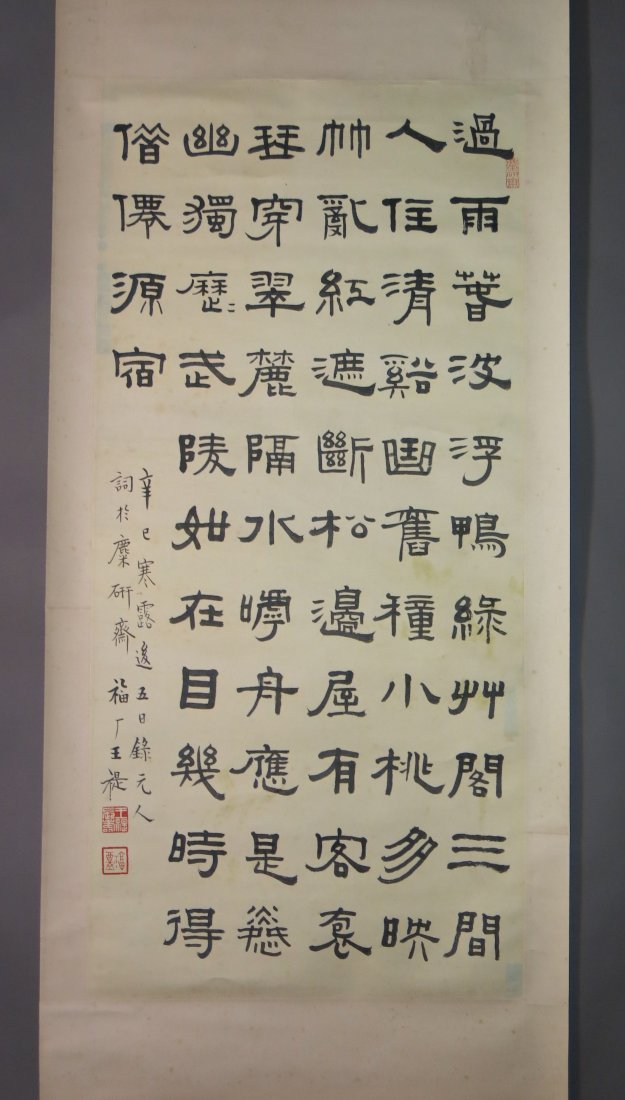 過雨萅波浮鴨綠艸閣三間
人住清谿曲舊種小桃多映
竹亂紅遮斷松邊屋有客裒
琹穿翠麓隔水嘑舟應是憐
幽獨歷〻武陵如在目幾時得
借僊源宿
辛巳寒露後五日錄元人
詞於麋研齋 福厂王禔